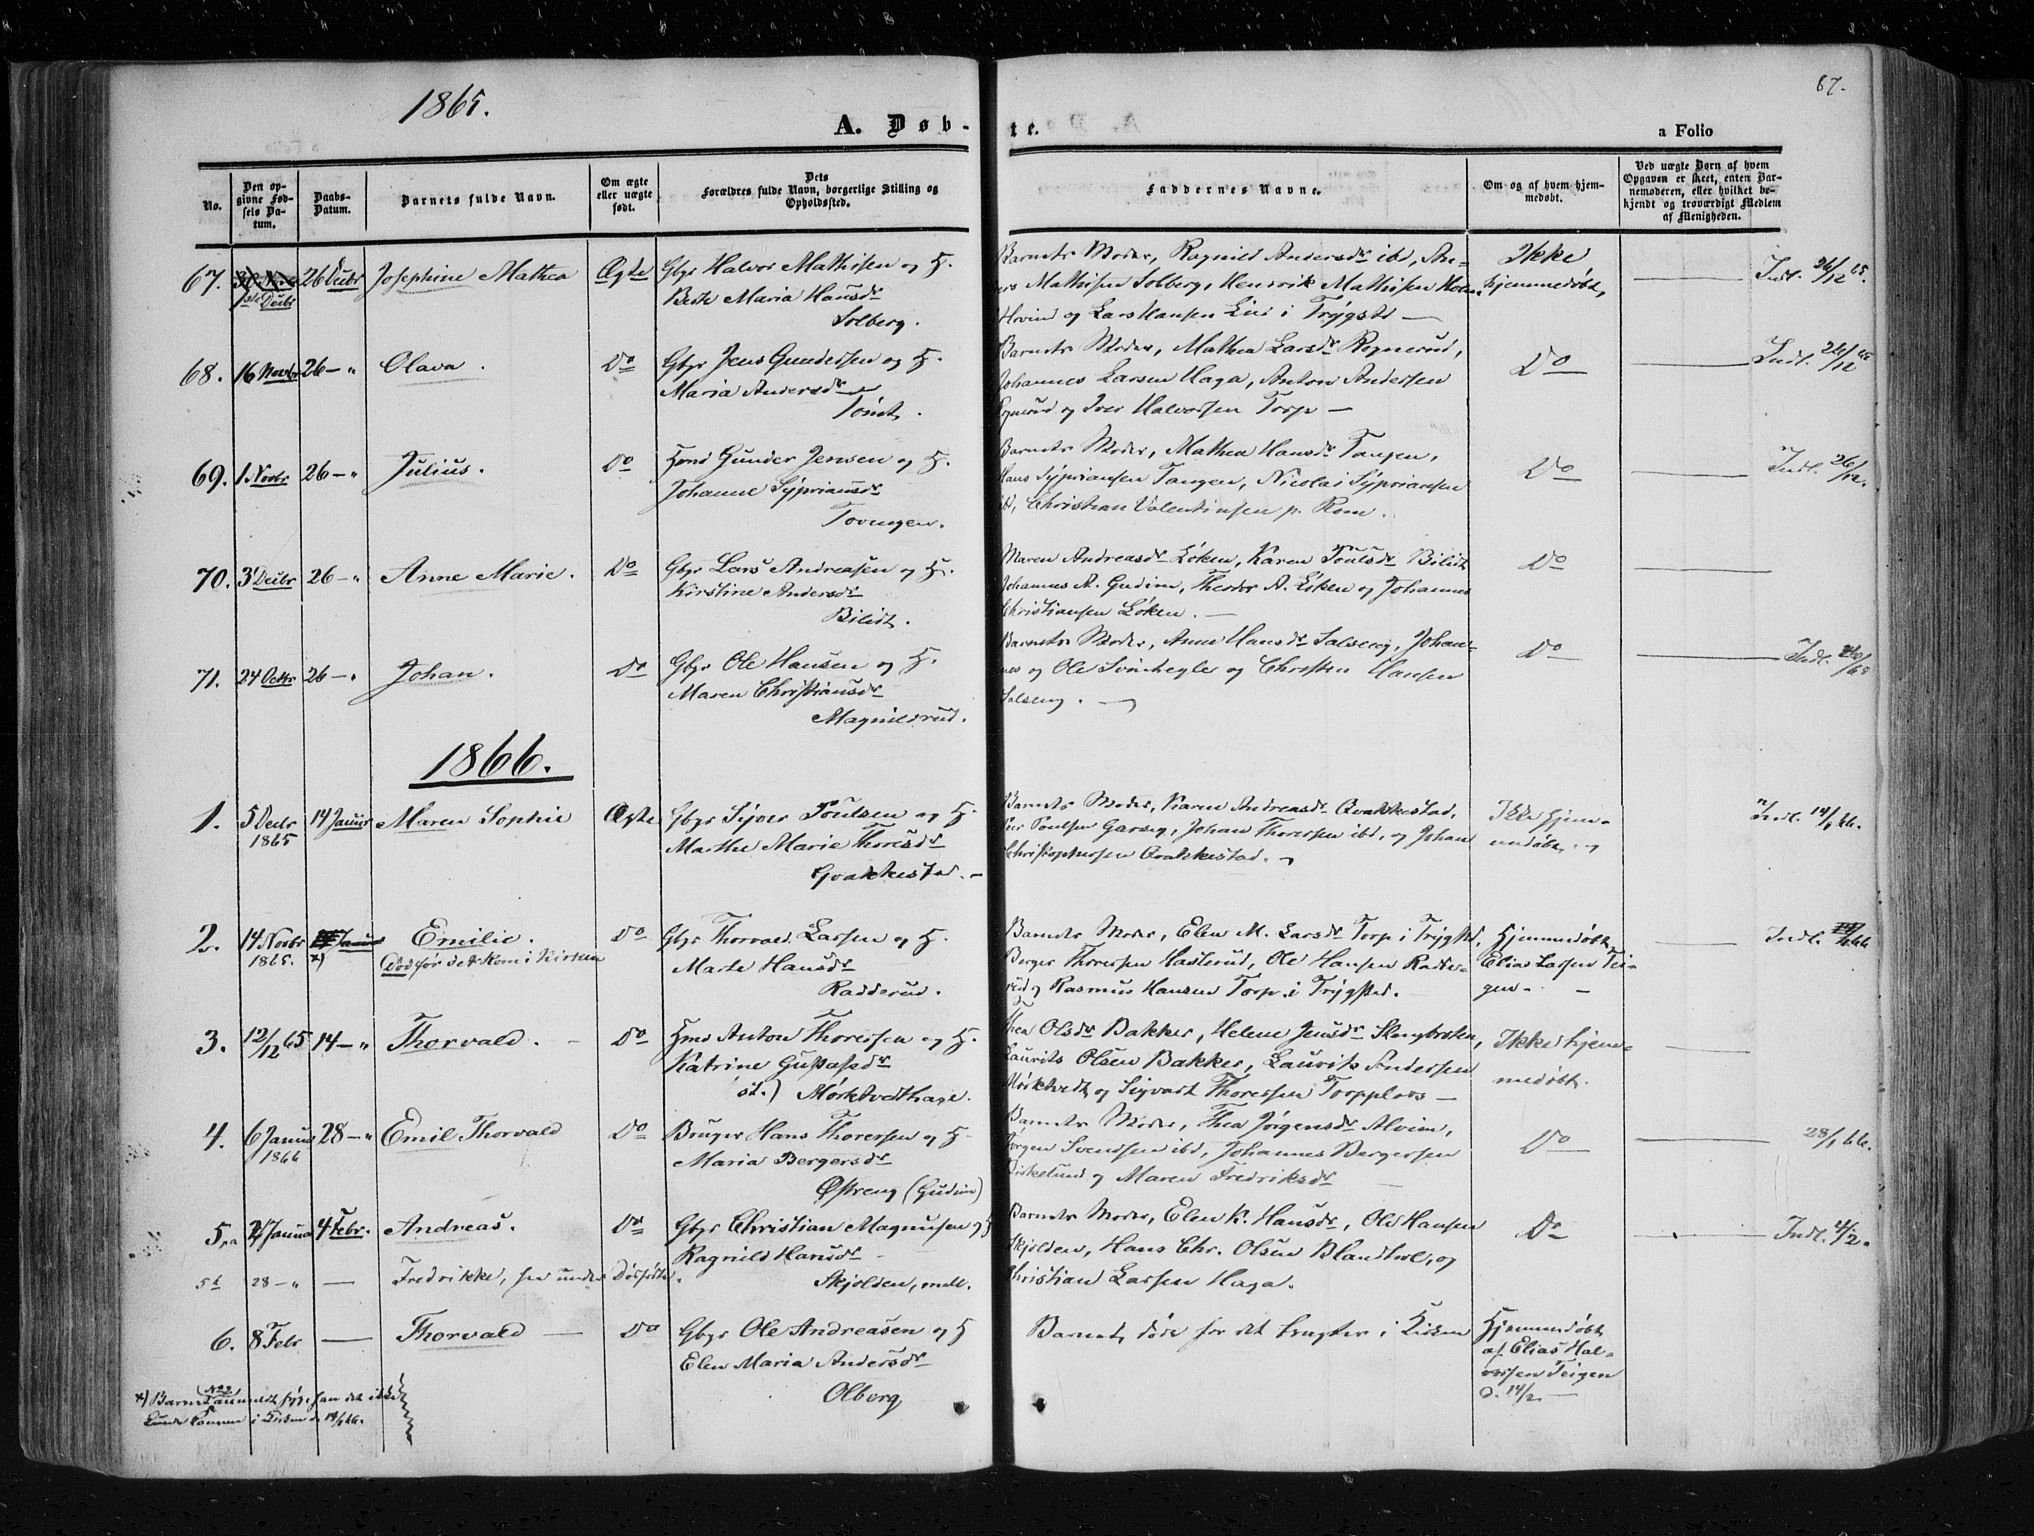 1865.
87.
A. Døb-
te.
a Folio
No.
Den op-
givne Fød-
sels Da-
tum.
Daabs-
Datum.
Barnets fulde Navn.
Om ægte
eller uægte
født.
Dets
Forældres fulde Navn, borgerlige Stilling og
Opholdssted.
Faddernes Navne.
Om og af hvem hjem-
medøbt.
Ved uægte Børn af hvem
Opgaven er skeet, enten Bar-
nemoderen, eller hvilket be-
kjendt og troværdigt Medlem
af Menigheden.
67. 1ste Decbr 26 Decbr Josephine Mathea Ægte Gbgr Halvor Mathisen og H.
Berte Maria Hansdr
Solberg.
Barnets Moder, Ragnild Andersdr ibd, An-
ers Mathisen Solberg, Henrik Mathisen
Hovind og Lars Hansen Lier i Trygstd —
Ikke
hjemmedøbt,
Indl. 26/12 65.
68. 16 Novbr 26 — " Olava. Do Gbgr Jens Gundersen og H.
Maria Andersdr
Tømt.
Barnets Moder, Mathea Larsdr Rognerud,
Johannes Larsen Haga, Anton Andersen
Rognerud og Iver Halvorsen Torp —
Do
Indl. 26/12 65
69. 1 Novbr 26 — " Julius. Do Hmd Gunder Jensen og H.
Johanne Sypriansdr
Tovengen.
Barnets Moder, Mathea Hansdr Tangen,
Hans Sypriansen Tangen, Nicolai Sypriansen
ibd, Christian Valentinsen p. Rom.
Do
Indl. 26/12.
70. 3 Decbr 26 — " Anne Marie. Do Gbgr Lars Andreasen og H.
Kirstine Andersdr
Bilidt.
Maren Andreasdr Løken, Karen Poulsdr Bilidt
Johannes A. Gudim, Theodor A. Løken og Johannes
Christiansen Løken. —
Do
71. 24 Octbr 26 — " Johan. Do Gbgr Ole Hansen og H.
Maren Christiansdr
Magnildsrud.
Barnets Moder, Anne Hansdr Salseng, Johan-
nes og Ole Svinhegler og Christen Hansen
Salseng. —
Do
Indl.
1866.
1. 5 Decbr 1865 14 Januar Maren Sophie Ægte Gbgr Sjver Poulsen og H.
Marthe Marie Thoresdr
Gvakkestad. —
Barnets Moder, Karen Andreasdr Qvakkestad,
Per Poulsen Garseg, Johan Thoresen ibd, og Johan
Christophersen Qvakkestad. —
Ikke hjem-
medøbt. —
Indl. 14/1 66.
2. 14 Novbr 1865. x) Emilie. Do Gbgr Thorvald Larsen og H.
Død før det kom i Kirken
Marte Hansdr
Radderud.
Barnets Moder, Elen M. Larsdr Torp i Trygstd,
Berger Thoresen Hasterud, Ole Hansen Radde-
rud og Rasmus Hansen Torp i Trygsted.
Hjemmedøbt
Elias Larsen Tei-
gen. —
Indl.
3. 12/12 65 14 — " Thorvald. — Do Hmd Anton Thoresen og H.
Katrine Gustafsdr
Mørktvedthage.
Thea Olsdr Bakker, Helene Jensdr Slengbroten,
Laurits Olsen Bakker, Laurits Andersen
Mørktvedt og Sigvart Thoresen Torpploos —
Ikke hjem-
medøbt.
4. 6 Januar 1866 28 — " Emil Thorvald Do Bruger Hans Thorersen og H.
Maria Bergersdr
Østreng (Gudim)
Barnets Moder, Thea Jørgensdr Alvim,
Jørgen Svendsen ibd, Johannes Bergersen
Kirkelund og Maren Fredriksdr —
Do
28/1 66.
5a 4 Febr. Andreas. Do Gbgr Christian Magnusen og H
Ragnild Hansdr —
Skjolden, mell.
Barnets Moder, Elen K. Hansdr, Ole Hansen
Skjolden, Hans Chr. Olsen Blandhol, og
Christian Larsen Haga.
Do
Indl. 4/2.
5b 28 — " — Fredrikke, see under Dødfødte.
6. 8 Febr — Thorvald — Do Gbgr Ole Andreasen og H
Elen Maria Andersdr
Olberg
Barnet døde før det bragtes i Kirken
Hjemmedøbt
af Elias Hal-
vorsen Teigen
d. 14/2 —
x) Barnet No 2 anmeldt syge som det ikke
kunde komme i Kirken d 14/1 66.